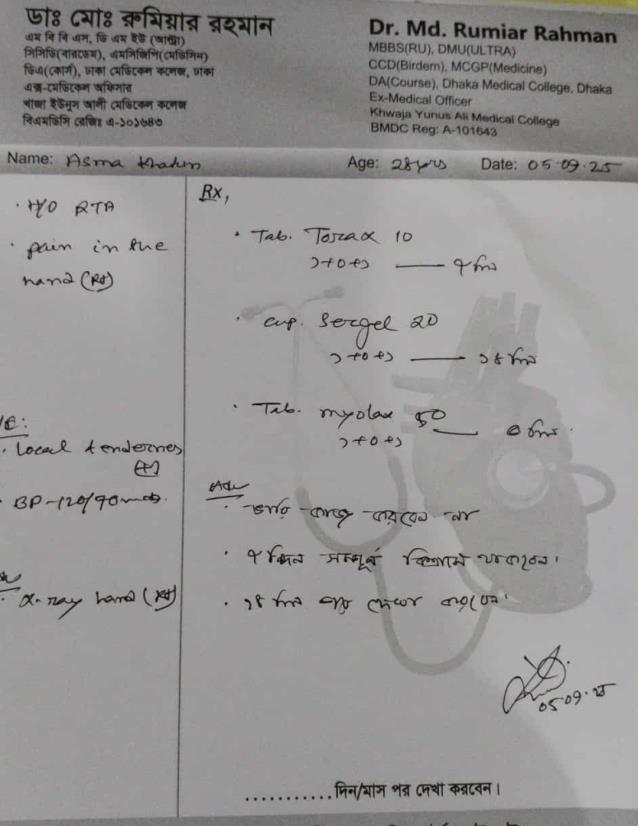 ডাঃ মোঃ রুমিয়ার রহমান
এম বি বি এস, ডি এম ইউ (আল্ট্রা)
সিসিডি(বারডেম), এমসিজিপি(মেডিসিন)
ডিএ(কোর্স), ঢাকা মেডিকেল কলেজ, ঢাকা
এক্স-মেডিকেল অফিসার
খাজা ইউনুস আলী মেডিকেল কলেজ
বিএমডিসি রেজিঃ এ-১০১৬৪৩
Dr. Md. Rumiar Rahman
MBBS(RU), DMU(ULTRA)
CCD(Birdem), MCGP(Medicine)
DA(Course), Dhaka Medical College, Dhaka
Ex-Medical Officer
Khwaja Yunus Ali Medical College
BMDC Reg: A-101643
Name: Asma Khatun Age: 28 yrs Date: 05.09.25
H/O RTA
pain in the
hand (Rt)
Local tenderness
(+)
BP-120/90
X-ray hand (Rt)
Rx,
Tab. Torax 10
১+০+১ — ৭ দিন
Cap. Sergel 20
১+০+১ — ১৪ দিন
Tab. myolax 50
১+০+১ — দিন
Adv
ভারি কাজ করবেন না
৭ দিন সম্পূর্ণ বিশ্রামে থাকবেন।
১৪ দিন পর দেখা করবেন।
05.09.25
...........দিন/মাস পর দেখা করবেন।